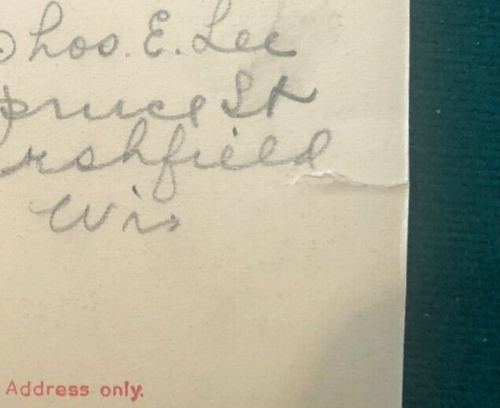 Chos. E. Lee
pruce St
arshfield
Wis
Address only.